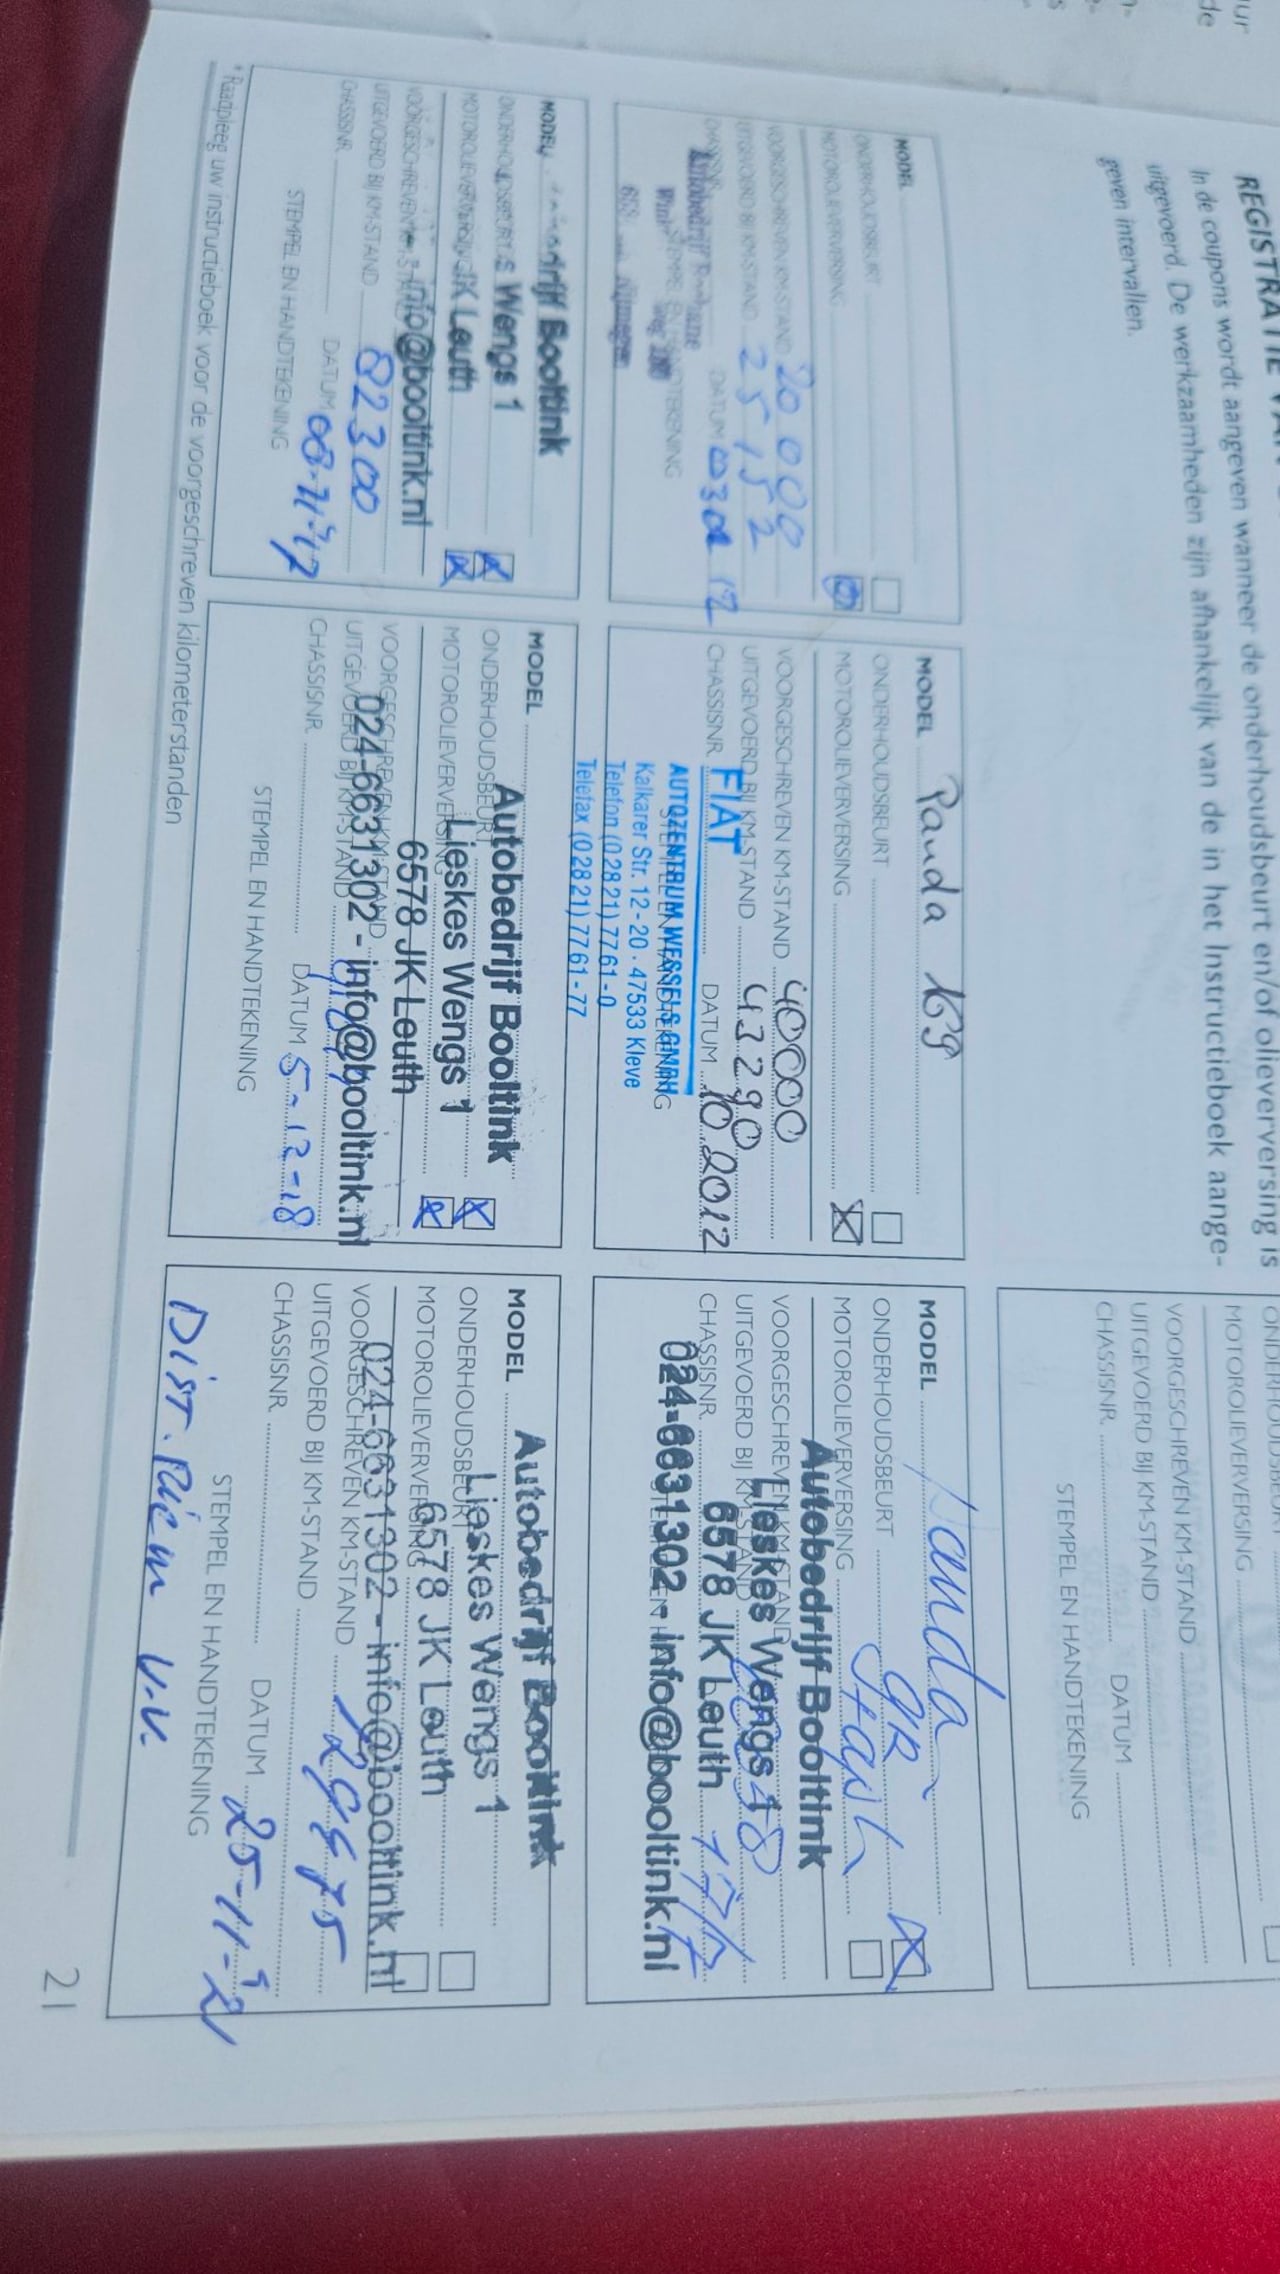 REGISTRATIE VA
In de coupons wordt aangeven wanneer de onderhoudsbeurt en/of olieverversing is
uitgevoerd. De werkzaamheden zijn afhankelijk van de in het Instructieboek aange-
geven intervallen.
ONDERHOUDSBEURT
MOTOROLIEVERVERSING
VOORGESCHREVEN KM-STAND
UITGEVOERD BIJ KM-STAND
CHASSISNR. DATUM
STEMPEL EN HANDTEKENING
MODEL
ONDERHOUDSBEURT
MOTOROLIEVERVERSING
VOORGESCHREVEN KM-STAND 20 000
UITGEVOERD BIJ KM-STAND 25 152
CHASSISNR. DATUM
STEMPEL EN HANDTEKENING
MODEL Panda 169
ONDERHOUDSBEURT
MOTOROLIEVERVERSING
VOORGESCHREVEN KM-STAND 40000
UITGEVOERD BIJ KM-STAND 43290
CHASSISNR. DATUM 10.2012
FIAT
STEMPEL EN HANDTEKENING
AUTOZENTRUM WESSELS GMBH
Kalkarer Str. 12-20 . 47533 Kleve
Telefon (0 28 21) 77 61-0
Telefax (0 28 21) 77 61-77
MODEL Panda
ONDERHOUDSBEURT
MOTOROLIEVERVERSING
Autobedrijf Booltink
VOORGESCHREVEN KM-STAND
Lieskes Wengs 1
UITGEVOERD BIJ KM-STAND
6578 JK Leuth
CHASSISNR.
024-6631302 - info@booltink.nl
MODEL
Booltink
ONDERHOUDSBEURT
s Wengs 1
MOTOROLIEVERVERSING
JK Leuth
VOORGESCHREVEN KM-STAND
info@booltink.nl
UITGEVOERD BIJ KM-STAND 82300
CHASSISNR. DATUM
STEMPEL EN HANDTEKENING
MODEL
Autobedrijf Booltink
ONDERHOUDSBEURT
Lieskes Wengs 1
MOTOROLIEVERVERSING
6578 JK Leuth
VOORGESCHREVEN KM-STAND
024-6631302 - info@booltink.nl
UITGEVOERD BIJ KM-STAND
CHASSISNR. DATUM 5-12-18
STEMPEL EN HANDTEKENING
MODEL
Autobedrijf Booltink
ONDERHOUDSBEURT
Lieskes Wengs 1
MOTOROLIEVERVERSING
6578 JK Leuth
VOORGESCHREVEN KM-STAND
024-6631302 - info@booltink.nl
UITGEVOERD BIJ KM-STAND
CHASSISNR. DATUM 25-11-'21
STEMPEL EN HANDTEKENING
DIST. Riem
* Raadpleeg uw instructieboek voor de voorgeschreven kilometerstanden
21